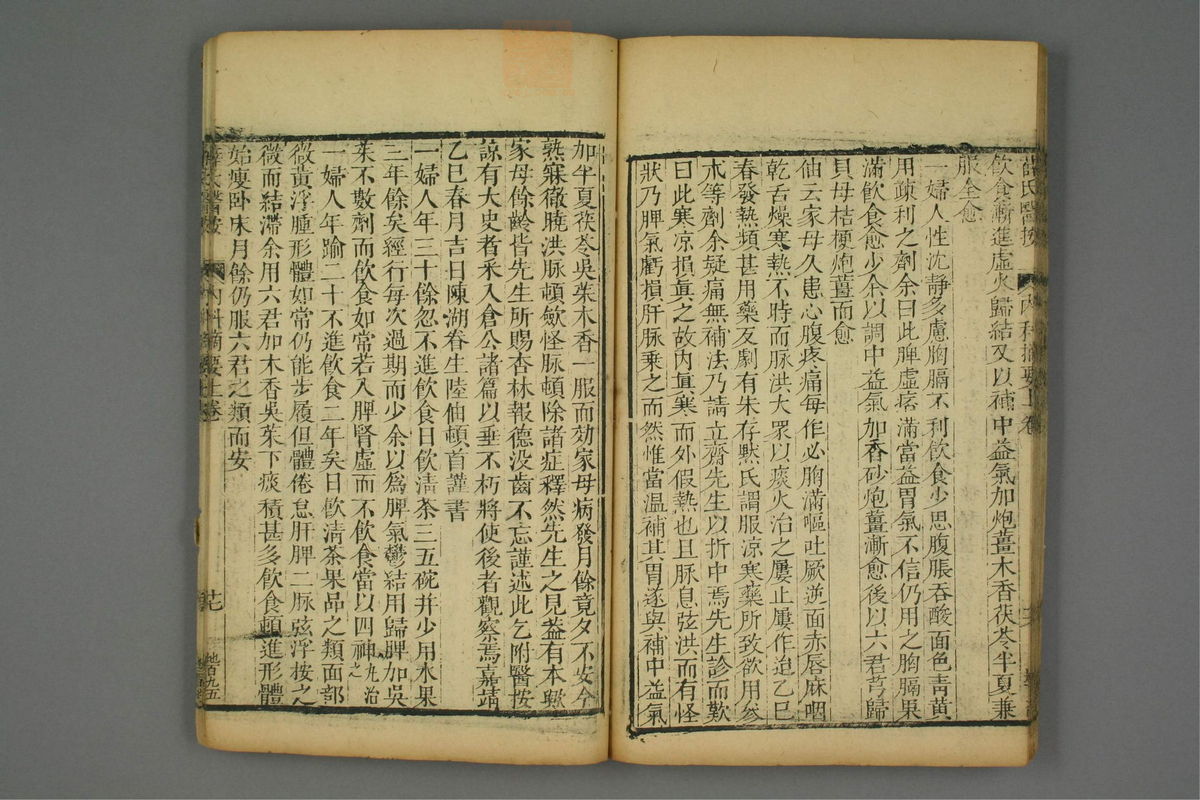 薛氏醫按 內科摘要上卷
飲食漸進虛火歸結又以補中益氣加炮薑木香茯苓半夏兼
服全愈
一婦人性沈靜多慮胸膈不利飲食少思腹脹吞酸面色青黃
用疎利之劑余曰此脾虛痞滿當益胃氣不信仍用之胸膈果
滿飲食愈少余以調中益氣加香砂炮薑漸愈後以六君芎歸
貝母桔梗炮薑而愈
伷云家母久患心腹疼痛每作必胸滿嘔吐厥逆面赤唇麻咽
乾舌燥寒熱不時而脉洪大眾以痰火治之屢止屢作迨乙巳
春發熱頻甚用藥反劇有朱存默氏謂服涼寒藥所致欲用參
朮等劑余疑痛無補法乃請立齋先生以折中焉先生診而歎
曰此寒凉損眞之故內眞寒而外假熱也且脉息弦洪而有怪
狀乃脾氣虧損肝脉乘之而然惟當温補其胃遂與補中益氣
加半夏茯苓吳茱木香一服而効家母病發月餘竟夕不安今
熟寐徹曉洪脉頓歛怪脉頓除諸症釋然先生之見葢有本歟
家母餘齡皆先生所賜杏林報德没齒不忘謹述此乞附醫按
諒有大史者釆入倉公諸篇以垂不朽將使後者觀察焉嘉靖
乙巳春月吉日陳湖眷生陸伷頓首謹書
一婦人年三十餘忽不進飲食日飲清茶三五碗并少用水果
三年餘矣經行每次過期而少余以爲脾氣鬱結用歸脾加吳
茱不數劑而飲食如常若人脾腎虛而不飲食當以四神丸治之
一婦人年踰二十不進飲食二年矣日飲清茶果品之類面部
微黃浮腫形體如常仍能步履但體倦怠肝脾二脉弦浮按之
微而結滯余用六君加木香吳茱下痰積甚多飲食頓進形體
始瘦臥床月餘仍服六君之類而安
薛氏醫按 內科摘要上卷